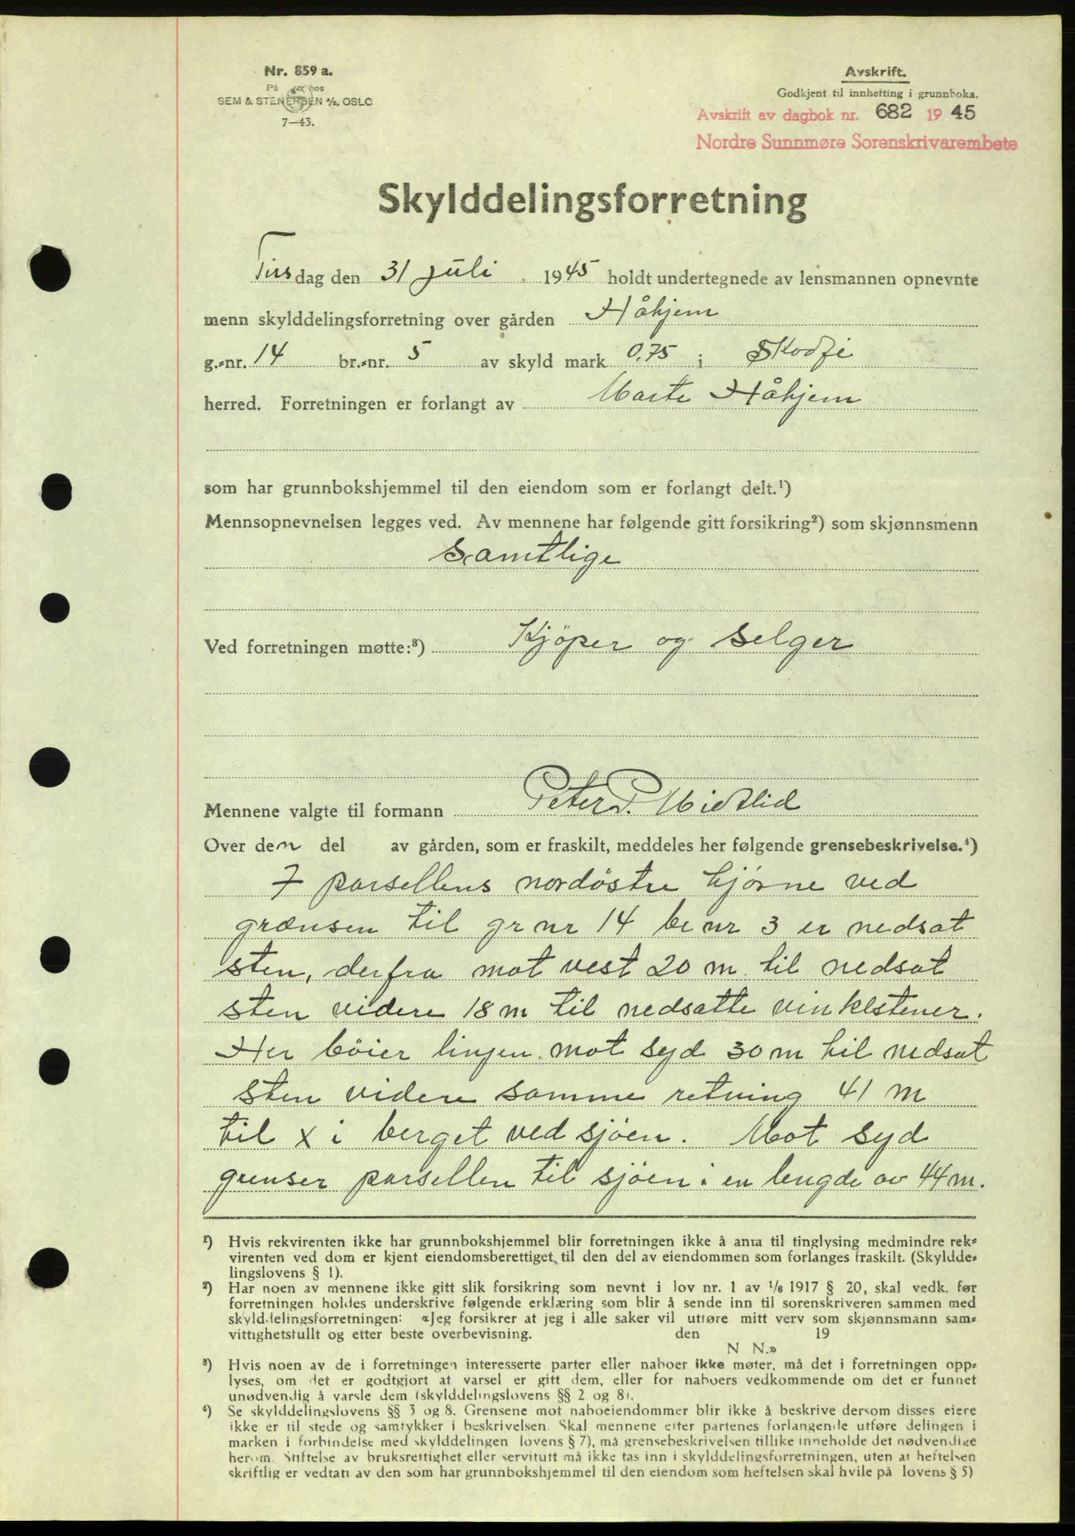 Nr. 859 a.
På lager hos
SEM & STENERSEN A/S, OSLO
7—43.
Avskrift.
Godkjent til innhefting i grunnboka.
Avskrift av dagbok nr. 682 1945
Nordre Sunnmøre Sorenskrivarembete
Skylddelingsforretning
Tirsdag den 31 juli . 1945 holdt undertegnede av lensmannen opnevnte
menn skylddelingsforretning over gården Håhjem
g.-nr. 14 br.-nr. 5 av skyld mark 0,75 i Skodje
herred. Forretningen er forlangt av Marte Håhjem
som har grunnbokshjemmel til den eiendom som er forlangt delt.¹)
Mennsopnevnelsen legges ved. Av mennene har følgende gitt forsikring²) som skjønnsmenn
Samtlige
Ved forretningen møtte:³) Kjöper og selger
Mennene valgte til formann Peter P. Midtlid
Over den del av gården, som er fraskilt, meddeles her følgende grensebeskrivelse.⁴)
I parsellens nordöstre hjørne ved
grænsen til gr nr 14 br nr 3 er nedsat
sten, derfra mot vest 20 m. til nedsat
sten videre 18 m til nedsatte vinklstener.
Her böier linjen mot syd 30 m til nedsat
sten videre samme retning 41 m
til x i berget ved sjöen. Mot syd
grenser parsellen til sjöen i en lengde av 44 m.
¹) Hvis rekvirenten ikke har grunnbokshjemmel blir forretningen ikke å anta til tinglysing medmindre rek-
virenten ved dom er kjent eiendomsberettiget til den del av eiendommen som forlanges fraskilt. (Skyldde-
lingslovens § 1).
²) Har noen av mennene ikke gitt slik forsikring som nevnt i lov nr. 1 av 1/6 1917 § 20, skal vedk. før
forretningen holdes underskrive følgende erklæring som blir å sende inn til sorenskriveren sammen med
skylddelingsforretningen: «Jeg forsikrer at jeg i alle saker vil utføre mitt verv som skjønnsmann sam-
vittighetsfullt og etter beste overbevisning. den 19
N N.»
³) Hvis noen av de i forretningen interesserte parter eller naboer ikke møter, må det i forretningen opp-
lyses, om det er godtgjort at varsel er gitt dem, eller for naboers vedkommende om det er funnet
unødvendig å varsle dem (skylddelingslovens §§ 2 og 8).
⁴) Se skylddelingslovens §§ 3 og 8. Grensene mot naboeiendommer blir ikke å beskrive dersom disses eiere
ikke er til stede og samtykker i beskrivelsen. Skal mennene etter partenes forlangende utføre delingen i
marken i forbindelse med skylddelingen lovens § 7), må grensebeskrivelsen tillike inneholde det nødvendige
herom. Stiftelse av bruksrettighet eller servitutt må ikke tas inn i skylddelingsforretningen, uten at heftelsen
skriftlig er vedtatt av den som har grunnbokshjemmel til den eiendom som heftelsen skal hvile på lovens § 5)